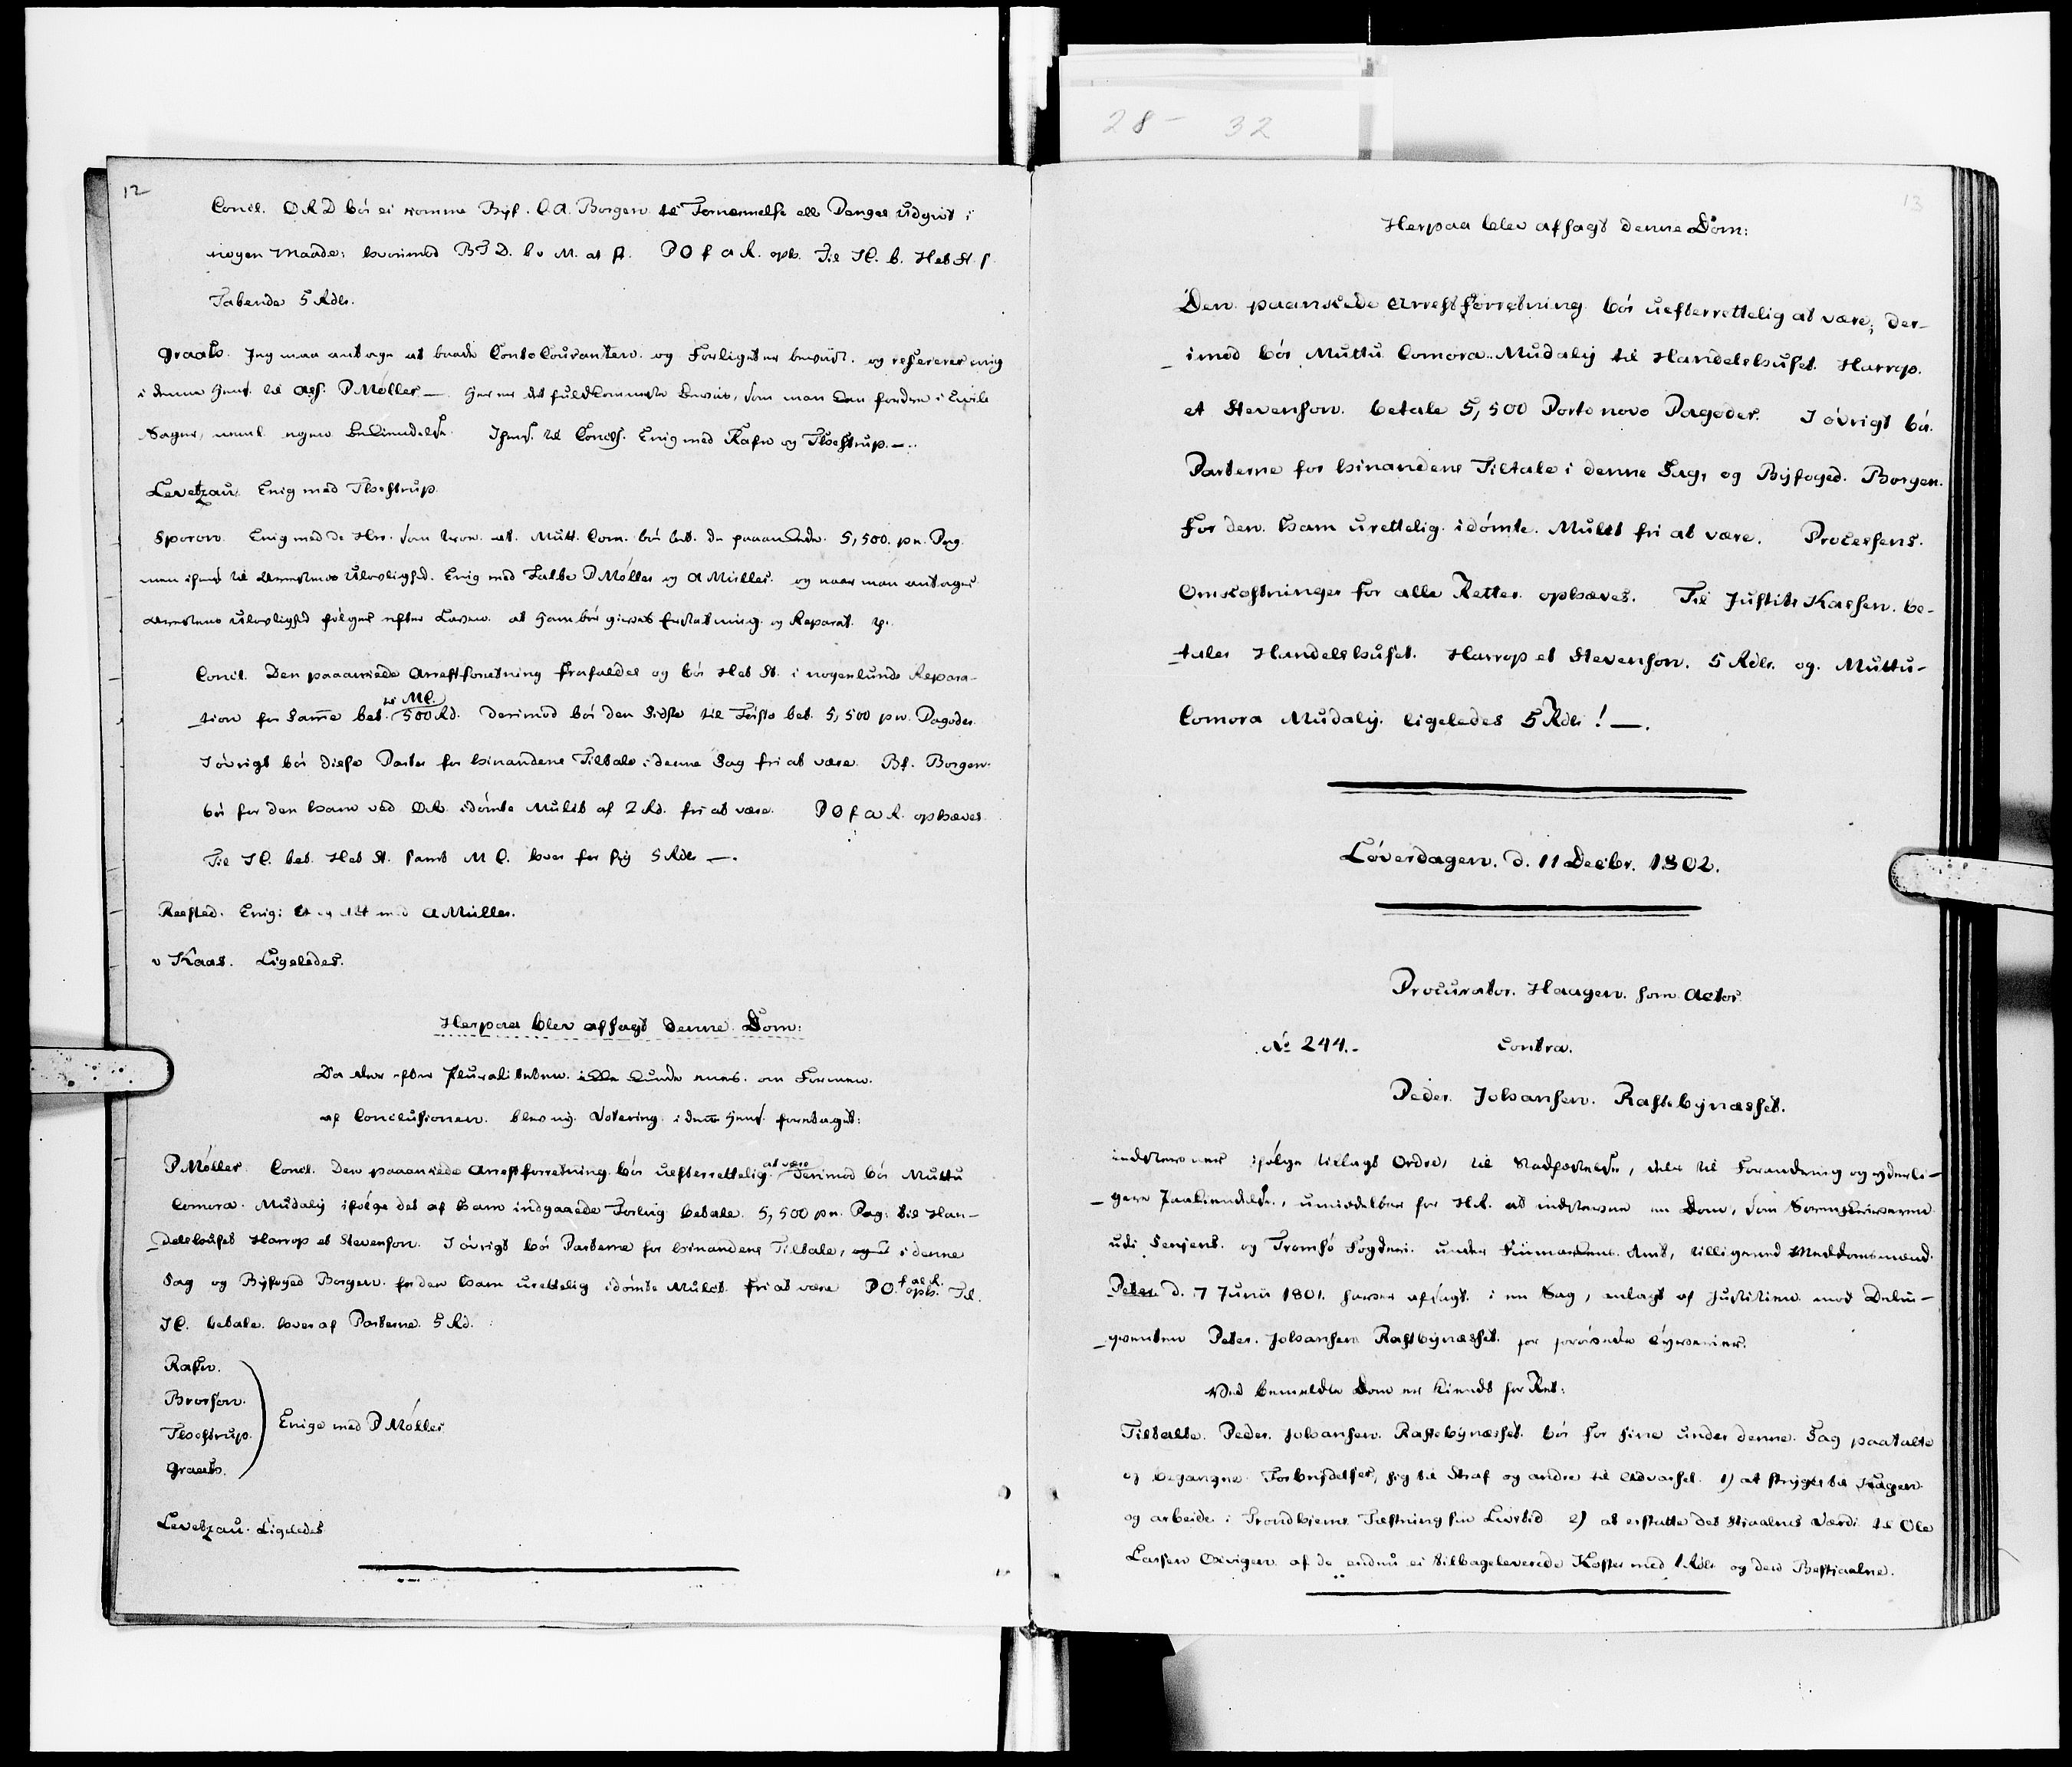 28- 32
12
Concl. ORD bör ei komme Byf. C.A. Borgen til Fornærmelse ell Penges Udgivt i
nogen Maade: hvorimod BTD. b v M. at st. POfaR. oph. Til JC. b. H et St. s
Tabende 5 Rdlr.
Graah. Jeg maa antage at baade Conto Couranten og Forliget er beviist. og refererer mig
i denne Hens. til Ass. P Møller —. Her er det fuldkomneste Beviis, som man kan fordre i Civile
Sager, neml. egen Bekiendelse. Ihens. til Concls. Enig med Rafn og Thostrup. —.
Levetzau. Enig med Thostrup.
Sporon. Enig med de Hrr. som troe at Mutt. Com. bör bet. de paaankede 5,500. pn. Pag.
men ihens. til Arrestens Ulovlighed. Enig med Falbe P Møller og A Müller. og naar man antager
Arrestens Ulovlighed følger efter Loven at Ham bör gives Erstatning og Reparat.
Concl. Den paaankede Arrestforretning frafaldes og bör H et St. i nogenlunde Repara-
tion for Samme bet. til MC. 500 Rd. derimod bör den Sidste til Første bet. 5,500 pn. Pagoder
I övrigt bör disse Parter for hinandens Tiltale i denne Sag fri at være. Bf. Borgen
bör for den ham ved OR. idömte Mulct af 2 Rd. fri at være. POfaR. ophæves
Til JC. bet. H et St. samt MC. hver for sig 5 Rdlr —.
Reested. Enig: Et og Alt med A Müller.
v Kaas. Ligeledes.
Herpaa blev afsagt denne Dom:
Da der efter Pluraliteten ikke kunde enes om Formen
af Conclusionen blev ny Votering i denne Hens. foretaget:
P Møller. Concl. Den paaankede Arrestforretning bör uefterrettelig at være Derimod bör Muttu
Comora Mudaly ifölge det af ham indgaaede Forlig betale 5,500 pn. Pag: til Han-
delshuset Harrop et Stevenson. I övrigt bör Parterne for hinandens Tiltale, i denne
Sag og Byfoged Borgen for den ham urettelig idömte Mulct fri at være PO. f a R. oph. Til
JC. betale hver af Parterne 5 Rd.
Rafn.
Brorson.
Thostrup.
Graah.
Enige med P Møller
Levetzau. Ligeledes
13
Herpaa blev afsagt denne Dom:
Den paankede Arrestforretning bör uefterrettelig at være; der-
imod bör Muttu Comora Mudaly til Handelshuset Harrop
et Stevenson betale 5,500 Porto novo Pagoder. I övrigt bör
Parterne for hinandens Tiltale i denne Sag, og Byfoged Borgen
for den ham urettelig idömte Mulct fri at være. Processens
Omkostninger for alle Retter ophæves. Til Justits Kassen be-
taler Handelshuset Harrop et Stevenson 5 Rdlr. og Muttu
Comora Mudaly ligeledes 5 Rdlr! —.
Löverdagen. d. 11 Decbr. 1802.
Procurator Haagen som Actor
No 244.- contra
Peder Johansen Raftebynæsset.
indstevner ifølge tillagt Ordre, til Stadfæstelse, eller til Forandring og yderli-
gere Paakiendelse, umiddelbar for HR. at indstevne en Dom, som Sorenskriveren
udi Senjens og Tromsö Fogderi under Finmarkens Amt, tilligemed Meddomsmænd
Peter d. 7 Junii 1801 haver afsagt i en Sag, anlagt af Justitien mod Delin-
quenten Peter Johansen Raftbynæsset for forövede Tyverier.
Ved bemeldte Dom er kiendt for Ret:
Tiltalte Peder Johansen Raftebynæsset bör for sine under denne Sag paatalte
og begangne Forbrydelser, sig til Straf og andre til Advarsel 1) at stryges til Kagen
og arbeide i Trondhiems Fæstning sin Livstid 2) at erstatte det Stiaalnes Værdi til Ole
Larsen Oivigen af de endnu ei tilbageleverede Koster med 1 Rdlr og den Bestiaalne